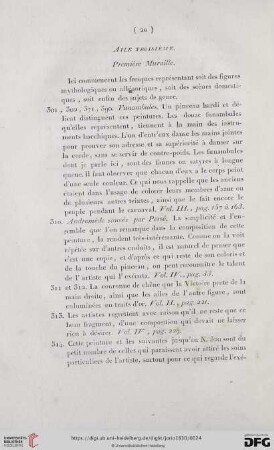 ( 20 )
AILE TROISIÈME.
Première Muraille.
Ici commencent les fresques représentant soit des figures
mythologiques ou allégoriques, soit des scènes domesti-
ques, soit enfin des sujets de genre.
302, 309, 371, 390. Funambules. Un pinceau hardi et dé-
licat distinguent ces peintures. Les douze funambules
qu'elles représentent, tiennent à la main des instru-
ments bachiques. L'un d'entr'eux danse les mains jointes
pour prouver son adresse et sa supériorité à danser sur
la corde, sans se servir de contre-poids. Les funambules
dont je parle ici, sont des faunes ou satyres à longue
queue. Il faut observer que chacun d'eux a le corps peint
d'une seule couleur. Ce qui nous rappelle que les anciens
étaient dans l'usage de colorer leurs membres d'une ou
de plusieurs autres teintes, ainsi que le fait encore le
peuple pendant le carnaval. Vol. III., pag. 157 à 163.
310. Andromède sauvée par Persé. La simplicité et l'en-
semble que l'on remarque dans la composition de cette
peinture, la rendent très-intéressante. Comme on la voit
répétée sur d'autres enduits, il est naturel de penser que
c'est une copie, et d'après ce qui reste de son coloris et
de la touche du pinceau, on peut connaitre le talent
de l'artiste qui l'exécuta. Vol. IV, pag. 43.
311 et 312. La couronne de chêne que la Victoire porte de la
main droite, ainsi que les ailes de l'autre figure, sont
enluminées en traits d'or. Vol. II., pag. 221.
313. Les artistes regrettent avec raison qu'il ne reste que ce
beau fragment, d'une composition qui devait ne laisser
rien à désirer. Vol. IV, pag. 229.
314. Cette peinture et les suivantes jusqu'au X. 320 sont du
petit nombre de celles qui paraissent avoir attiré les soins
particuliers de l'artiste, surtout pour ce qui regarde l'exé-
https://digi.ub.uni-heidelberg.de/diglit/jorio1830/0024
UNIVERSITÄTS-
BIBLIOTHEK
HEIDELBERG
© Universitätsbibliothek Heidelberg
gefördert durch die
DFG